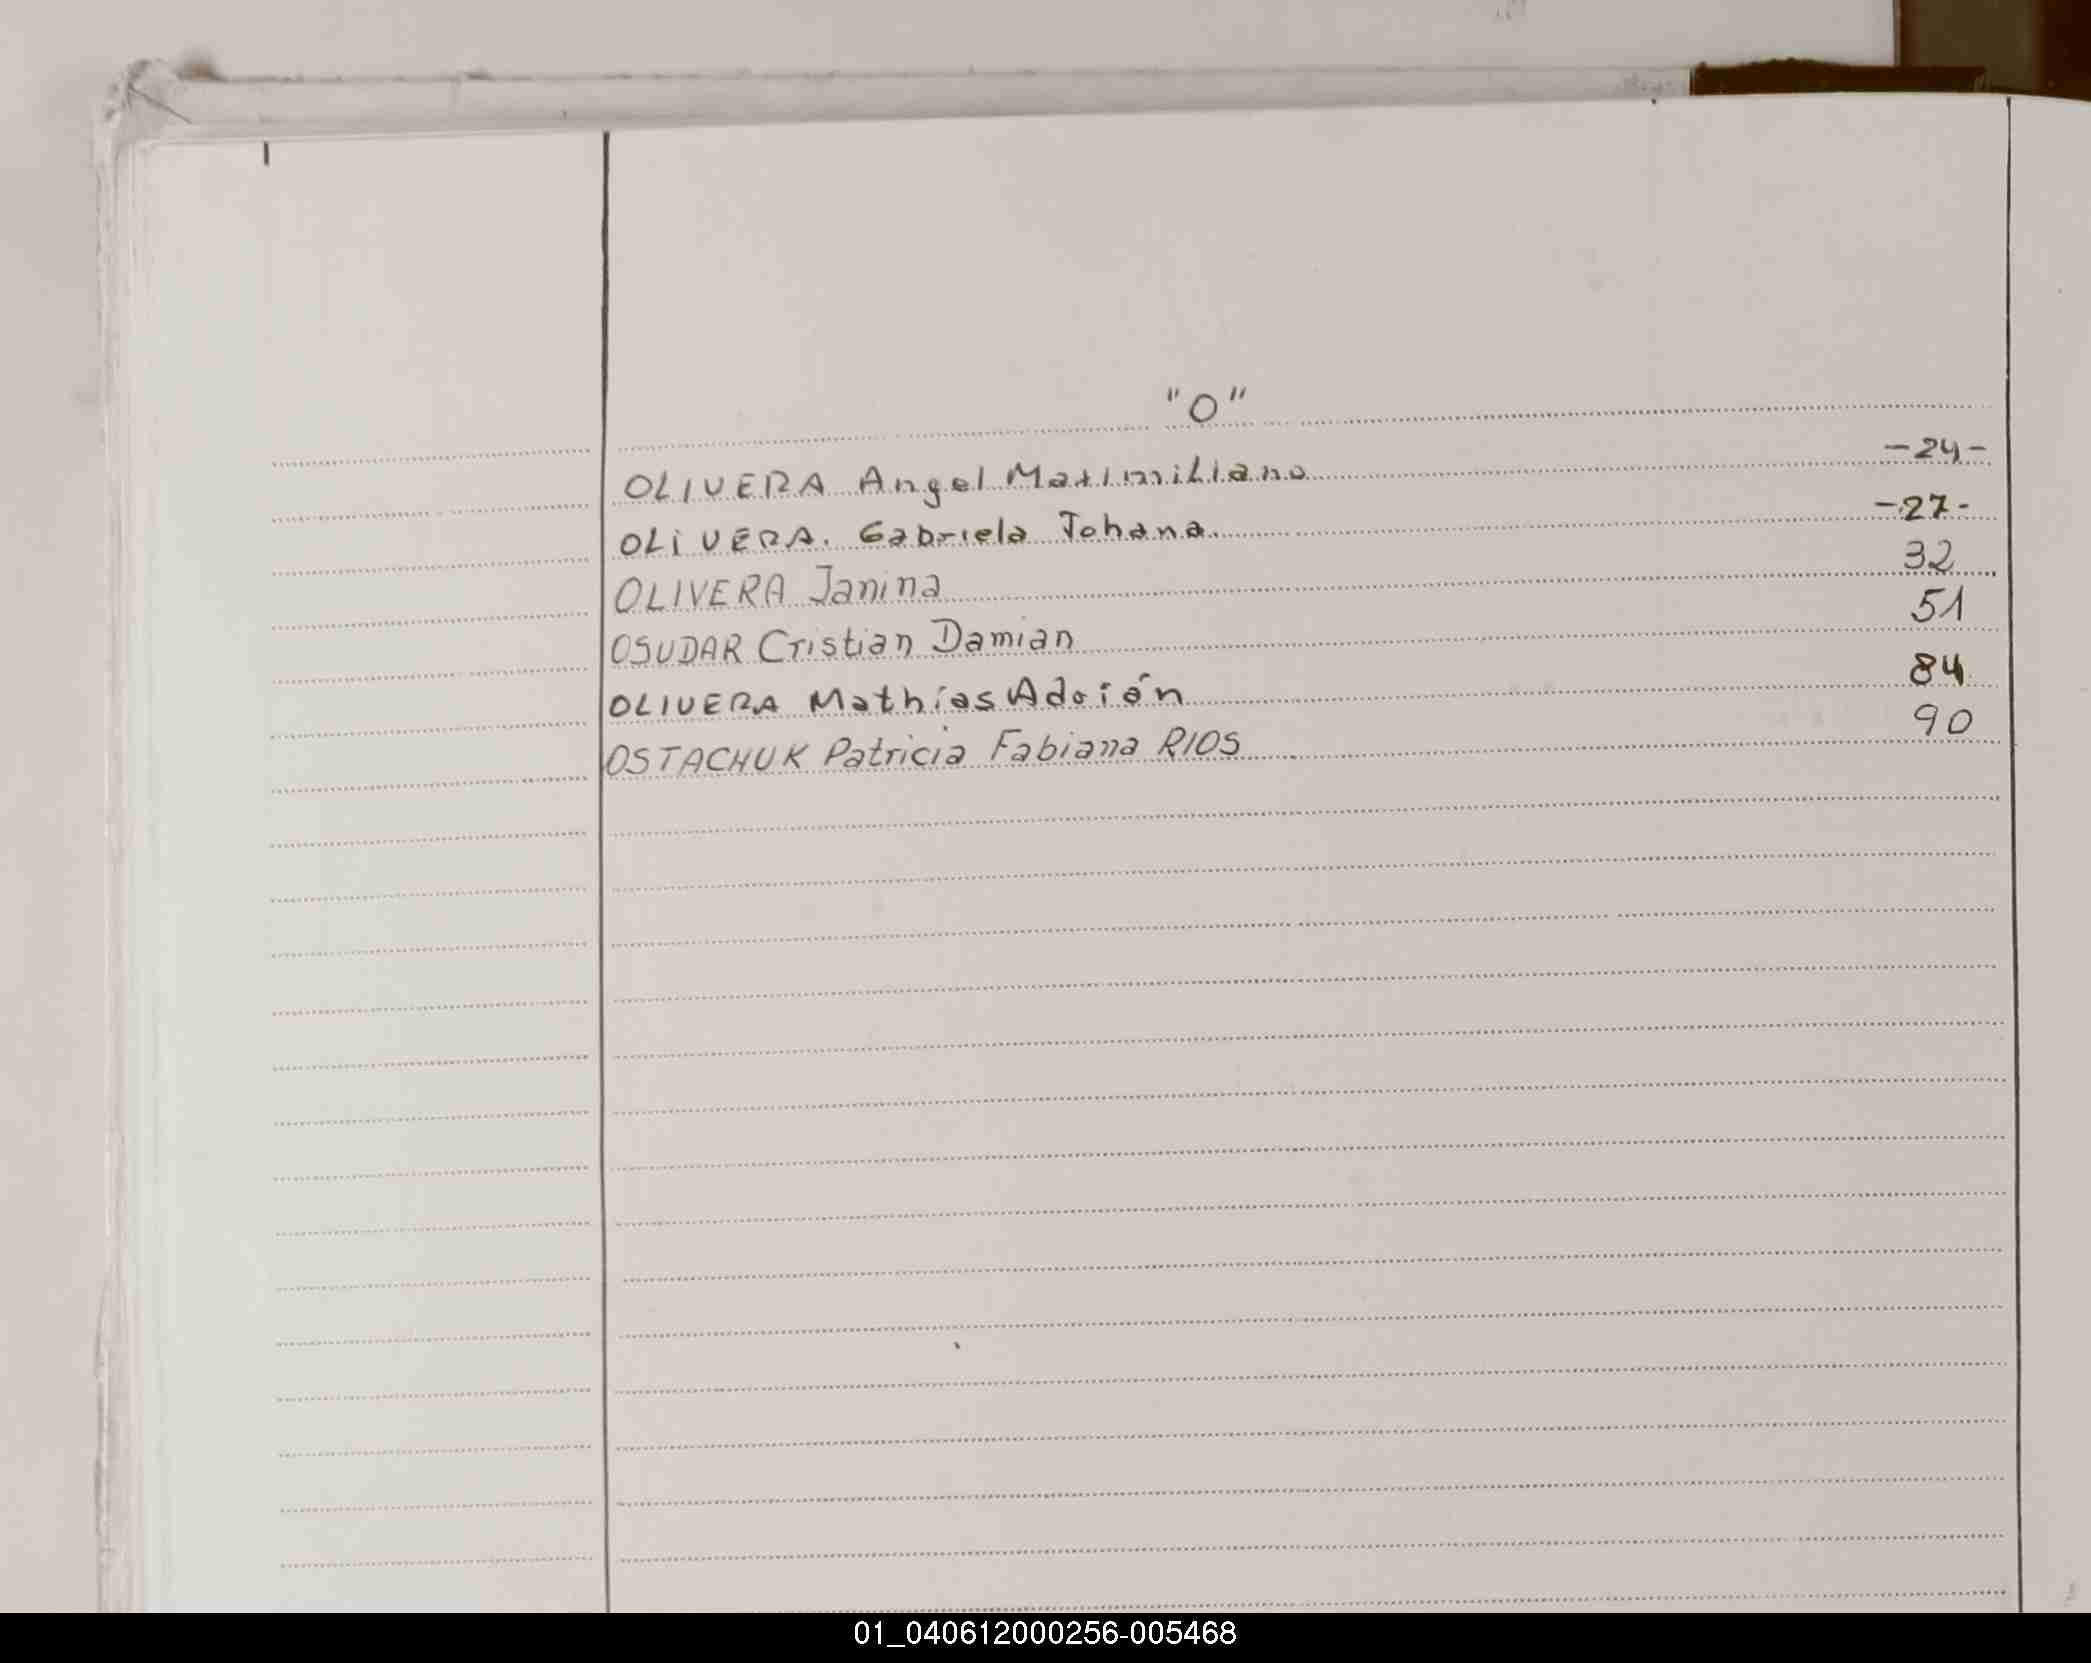 "O"
OLIVERA Angel Maximiliano -24-
OLiVERA. Gabriela Johana. -27-
OLIVERA Janina 32
OSUDAR Cristian Damian 51
OLIVERA Mathías Adrián 84
OSTACHUK Patricia Fabiana RIOS 90
01_040612000256-005468